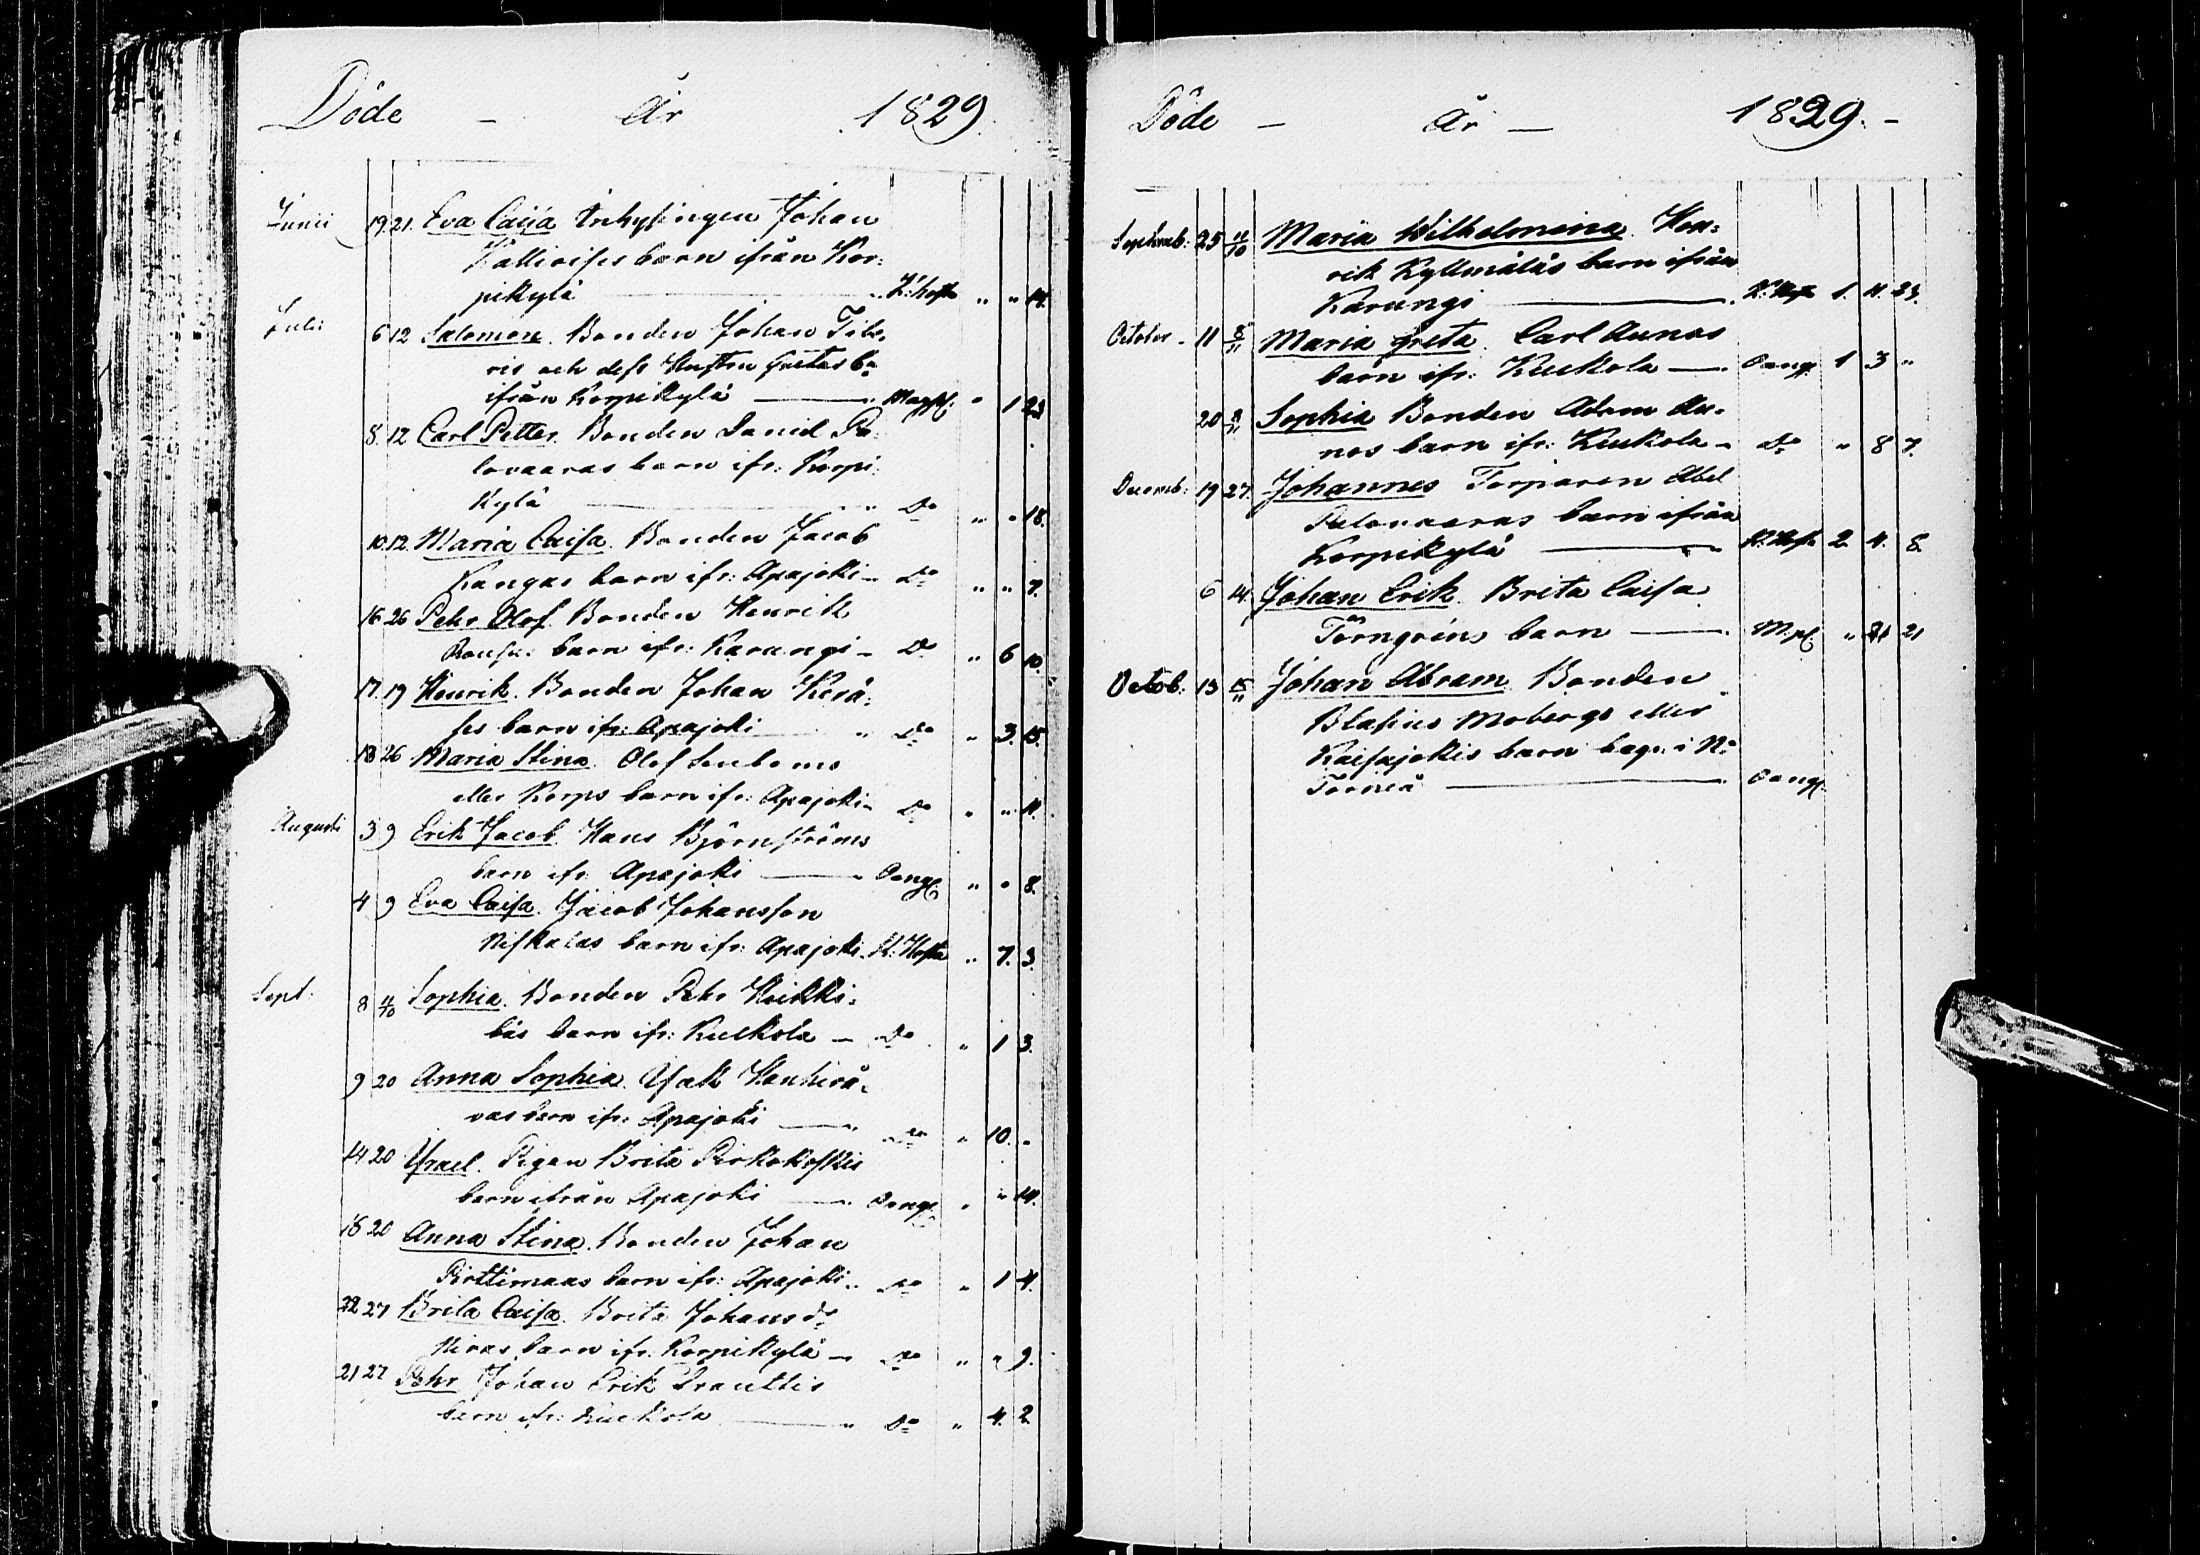 Döde - År 1829
Junii 19 21. Eva Caisa Inhysingen Johan
barn ifrån Kor=
pikylä K:hosta " " 14.
Julii 6 12 Salomon. Bonden Johan
ris och dess Hustru Gretas bn
ifrån Korpikylä Magpl: " 1 23
8. 12 Carl Petter. Bonden Daniel Pa=
lovaaras barn ifr: Korpi=
kylä Do " " 18.
10. 12. Maria Caisa. Bonden Jacob
Kangas barn ifr: Apajoki - Do " " 7.
16 26 Pehr Olof. Bonden Henrik
barn ifr: Karungi - Do " 6 10.
17. 19 Henrik. Bonden Johan Kerä=
ses barn ifr: Apajoki " Do " 3. 15.
18 26 Maria Stina. Olof
eller Korps barn ifr: Apajoki - Do " " 11.
Augusti 3 9 Erik Jacob. Hans Björnströms
barn ifr: Apajoki Oangf " " 8.
4 9 Eva Caisa. Jacob Johansson
Niskalas barn ifr: Apajoki K: Hosta " 7. 3.
Sept: 8 4/10 Sophia. Bonden Pehr Heikki=
läs barn ifr: Kuckola - Do " 1 3.
9 20 Anna Sophia. Isak Hanhirå=
vas barn ifr: Apajoki Do " 10. "
14 20 Israel. Pigan Brita Pirkokoskis
barn ifrån Apajoki Oangf " " 14.
18 20 Anna Stina. Bonden Johan
Pirttimaas barn ifr: Apajoki " Do " 1 4.
22 27 Brita Caisa. Brita Johansdr
Nivas barn ifr: Korpikylä - Do " " 9.
21 27 Pehr Johan Erik
barn ifr: Kuckola " Do " 4. 2
Döde - År - 1829. -
Septemb: 25 11/10 Maria Wilhelmina. Hen=
rik Kyllmäläs barn ifrån
Karungi K: Hosta 1. 11. 23.
October - 11 8/11 Maria Greta. Carl Aunas
barn ifr: Kuckola Oangf 1 3 "
20 8/11 Sophia Bonden Adam Au=
nos barn ifr: Kuckola - Do " 8 7.
Decemb: 19 27. Johannes Torparen Abel
Palovaaras barn ifrån
Korpikylä K: Hosta 2. 4. 8.
6 14. Johan Erik. Brita Caisa
Törngréns barn M:pl: " 21
Octob: 13 15/11 Johan Abram. Bonden
Blasius Mobergs eller
Kaisajokis barn begr: i N:
Torneå Oangf.